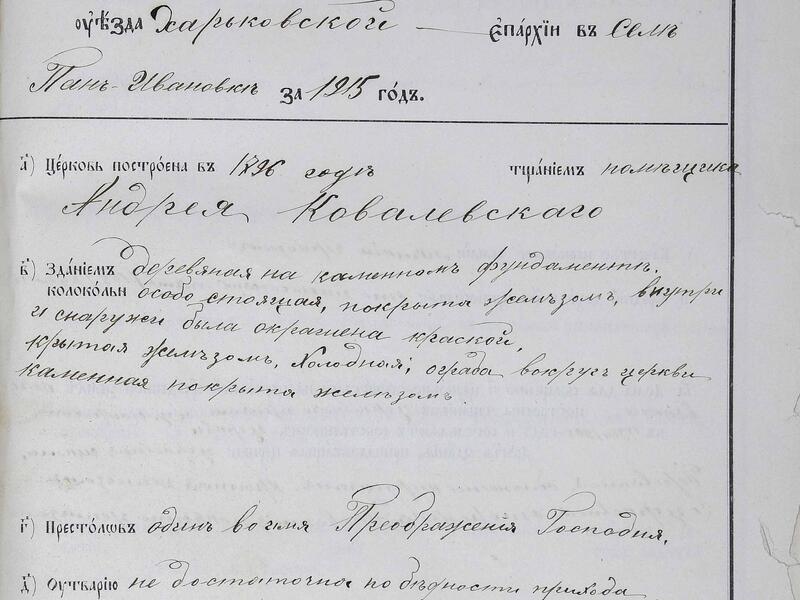 оуѣ́зда Харьковской епа́рхїи въ Селѣ
Панъ-Ивановкѣ за 1915 го́дъ.
а҃) Це́рковь постро́ена въ 1796 годѣ тща́нїемъ помѣщика
Андрея Ковалевскаго
в҃) Зда́нїемъ деревяная на каменномъ фундаментѣ.
колоко́льн особо стоящая, покрыта желѣзомъ, внутри
и снаружи была окрашена краской,
крытая желѣзомъ, холодная; ограда вокругъ церкви
каменная покрыта желѣзомъ
г҃) Престо́лѡвъ одинъ во имя Преображения Господня,
д҃) Оутварїю не достаточна по бѣдности прихода